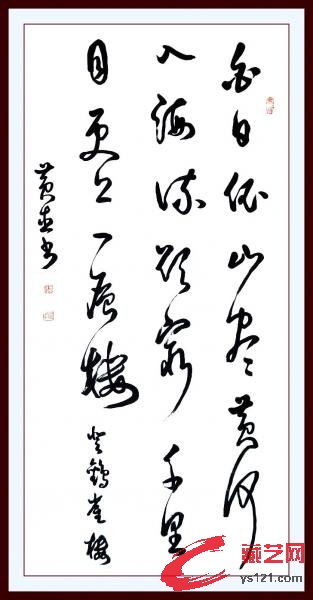 白日依山尽黄河
入海流欲穷千里
目更上一层楼 登鹳雀楼
黄 书
藏艺网
ys121.com